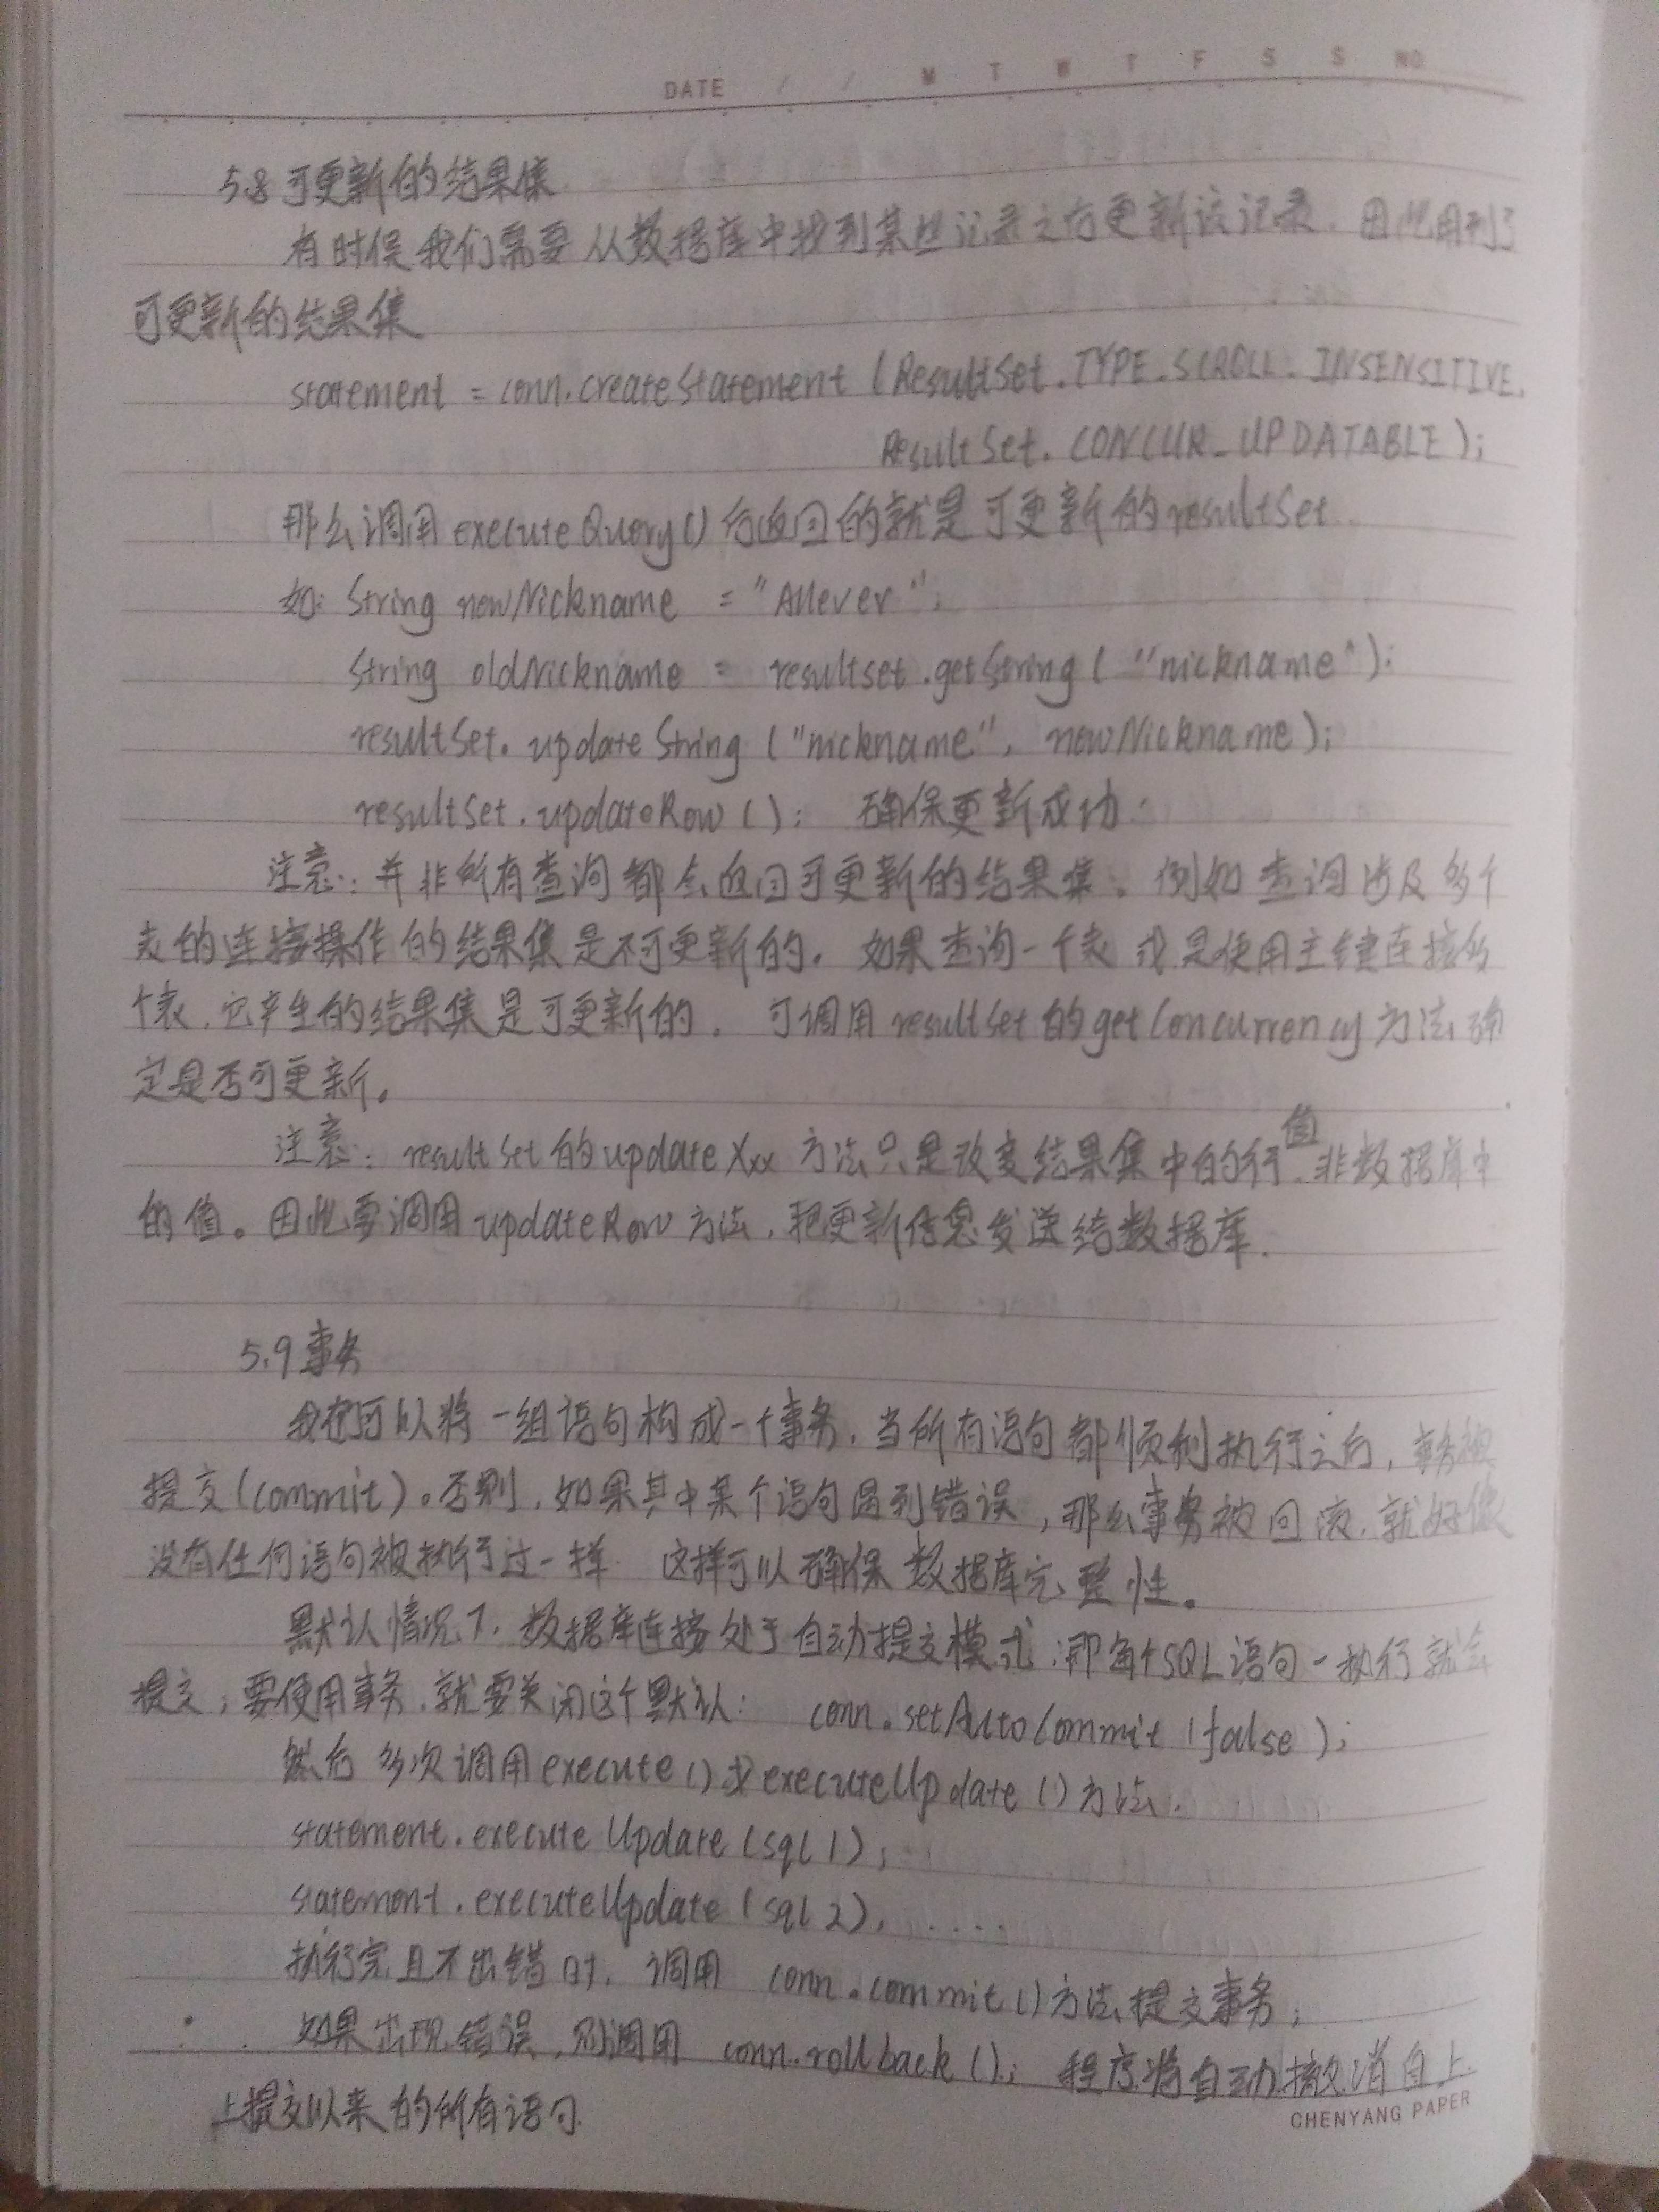 DATE / / M T W T F S S NO.
5.8 可更新的结果集
有时候我们需要从数据库中找到某些记录之后更新该记录. 因此用到了
可更新的结果集
statement = conn.createStatement (ResultSet.TYPE_SCROLL_INSENSITIVE,
ResultSet.CONCUR_UPDATABLE);
那么调用executeQuery()后返回的就是可更新的resultSet
如: String newNickname = "Allever";
String oldNickname = resultset.getString( "nickname");
resultSet.updateString ("nickname", newNickname);
resultSet.updateRow (); 确保更新成功.
注意: 并非所有查询都会返回可更新的结果集. 例如查询涉及多个
表的连接操作的结果集是不可更新的. 如果查询一个表或是使用主键连接多
个表, 它产生的结果集是可更新的. 可调用resultSet的getConcurrency方法确
定是否可更新.
注意: resultSet的updateXxx方法只是改变结果集中的行值,非数据库中
的值。因此要调用updateRow方法,把更新信息发送给数据库.
5.9 事务
我们可以将一组语句构成一个事务, 当所有语句都顺利执行之后, 事务被
提交(commit)。否则, 如果其中某个语句遇到错误, 那么事务被回滚, 就好像
没有任何语句被执行过一样 这样可以确保数据库完整性。
默认情况下, 数据库连接处于自动提交模式;即每个SQL语句一执行就会
提交; 要使用事务, 就要关闭这个默认: conn.setAutoCommit (false);
然后多次调用execute()或executeUpdate()方法.
statement.executeUpdate(sql1);
statement.executeUpdate(sql2), ....
执行完且不出错时, 调用 conn.commit()方法提交事务;
如果出现错误, 则调用 conn.rollback(); 程序将自动撤消自上
上提交以来的所有语句.
CHENYANG PAPER